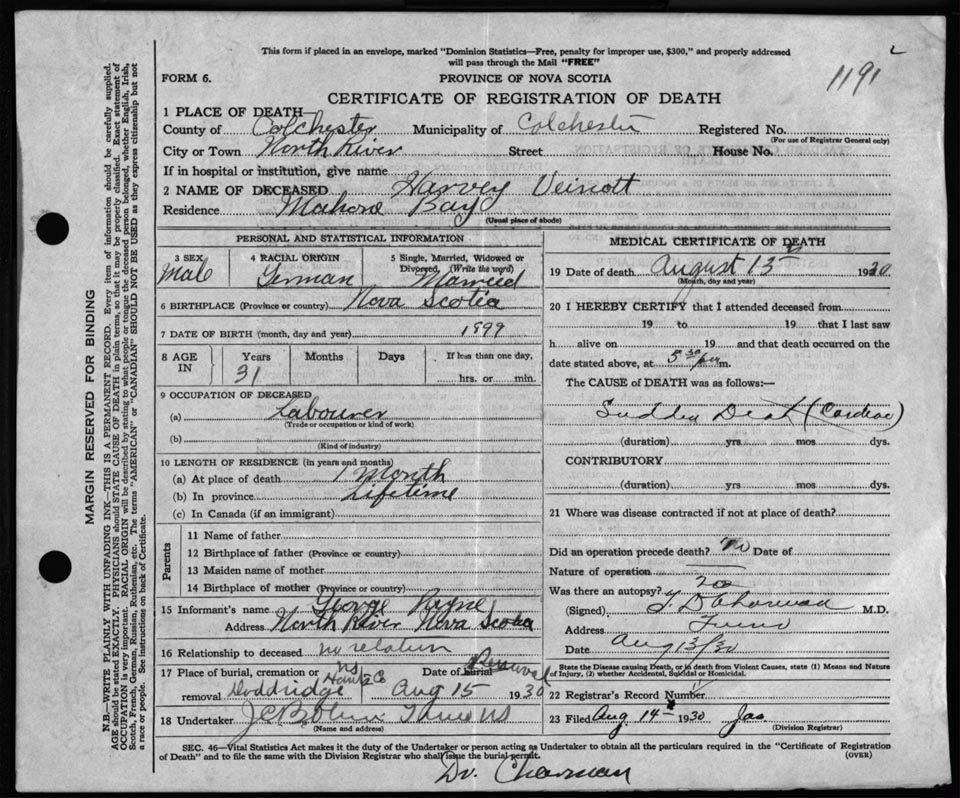 This form if placed in an envelope, marked "Dominion Statistics—Free, penalty for improper use, $300," and properly addressed
will pass through the Mail "FREE"
1191
FORM 6. PROVINCE OF NOVA SCOTIA
CERTIFICATE OF REGISTRATION OF DEATH
1 PLACE OF DEATH
County of Colchester Municipality of Colchester Registered No.
(For use of Registrar General only)
City or Town North River Street House No.
If in hospital or institution, give name
2 NAME OF DECEASED Harvey Veinott
Residence Mahone Bay
(Usual place of abode)
PERSONAL AND STATISTICAL INFORMATION
3 SEX Male
4 RACIAL ORIGIN German
5 Single, Married, Widowed or
Divorced, (Write the word) Married
6 BIRTHPLACE (Province or country) Nova Scotia
7 DATE OF BIRTH (month, day and year) 1899
8 AGE IN Years Months Days If less than one day,
31 hrs. or min.
9 OCCUPATION OF DECEASED
(a) Labourer
(Trade or occupation or kind of work)
(b)
(Kind of industry)
10 LENGTH OF RESIDENCE (in years and months)
(a) At place of death 1 Month
(b) In province Lifetime
(c) In Canada (if an immigrant)
Parents
11 Name of father
12 Birthplace of father (Province or country)
13 Maiden name of mother
14 Birthplace of mother (Province or country)
15 Informant's name George Payne
Address North River Nova Scotia
16 Relationship to deceased no relation
17 Place of burial, cremation or NS Date of burial Removal
removal Aug 15 1930
18 Undertaker NS
(Name and address)
MEDICAL CERTIFICATE OF DEATH
19 Date of death August 13 1930
(Month, day and year)
20 I HEREBY CERTIFY that I attended deceased from
19 to 19 that I last saw
h alive on 19 and that death occurred on the
date stated above, at 5 30 p m.
The CAUSE of DEATH was as follows:—
Sudden Death (Cardiac)
(duration) yrs mos dys.
CONTRIBUTORY
(duration) yrs mos dys.
21 Where was disease contracted if not at place of death?
Did an operation precede death? no Date of
Nature of operation
Was there an autopsy? no
(Signed) M.D.
Address Truro
Date Aug 13/30
State the Disease causing Death, or in death from Violent Causes, state (1) Means and Nature
of Injury, (2) whether Accidental, Suicidal or Homicidal.
22 Registrar's Record Number
23 Filed Aug. 14 1930 Jas
(Division Registrar)
SEC. 46—Vital Statistics Act makes it the duty of the Undertaker or person acting as Undertaker to obtain all the particulars required in the "Certificate of Registration
of Death" and to file the same with the Division Registrar who shall issue the burial permit. (OVER)
Dr. Charman
MARGIN RESERVED FOR BINDING
N.B.—WRITE PLAINLY WITH UNFADING INK—THIS IS A PERMANENT RECORD. Every item of information should be carefully supplied.
AGE should be stated EXACTLY. PHYSICIANS should STATE CAUSE OF DEATH in plain terms, so that it may be properly classified. Exact statement of
OCCUPATION is very important. RACIAL ORIGIN will be described by stating to what people or tongue the deceased person belonged, whether English, Irish,
Scotch, French, German, Russian, Ruthenian, etc. The terms "AMERICAN" or "CANADIAN" SHOULD NOT BE USED as they express citizenship but not
a race or people. See instructions on back of Certificate.